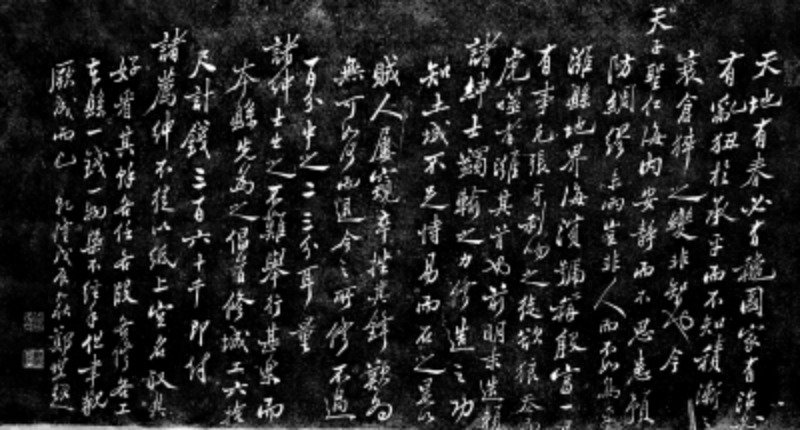 天地有春必有秋國家有治
有亂狃於承平而不知積漸之
衰倉猝之變非智也今
天子聖仁海内安靜而不思患預
防綢繆未雨豈非人而不如鳥乎
濰縣地界海濱號稱殷富一
有事凡張牙利吻之徒欲狼吞而
虎噬者濰其首也前明末造賴
諸紳士蠲輸之力修造之功
知土城不足恃易而石之是以
賊人屢窺卒挫其鋒歎為
無可如何而退今之所修不過
百分中之二三分耳量
諸紳士之不難舉行其累而
本縣先為之倡首修城工六十
尺計錢三百六十千即付
諸薦紳不徒以紙上空名取其
好看其餘各任各股各修各工
本縣一錢一物概不經手但聿觀
厥成而已乾隆戊辰 鄭燮題